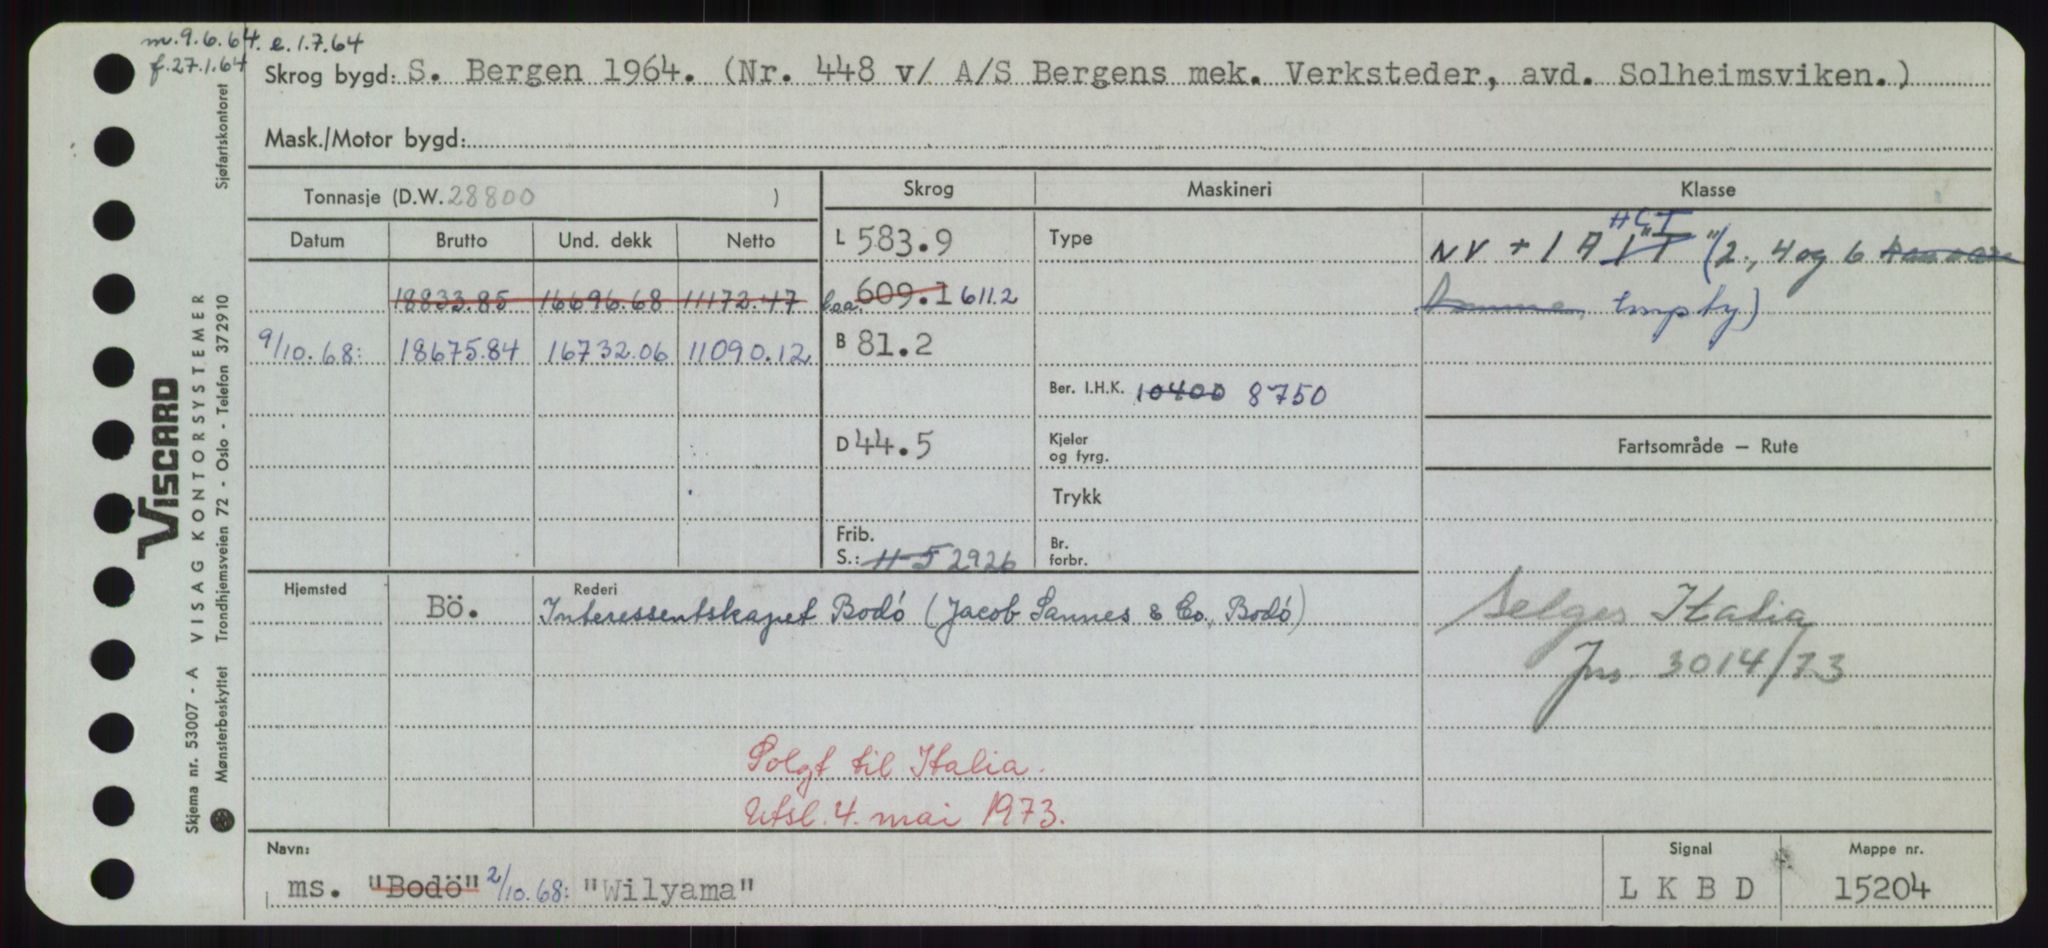 m.9.6.64. e.1.7.64
f.27.1.64
Skrog bygd: S. Bergen 1964. (Nr. 448 v/ A/S Bergens mek. Verksteder, avd. Solheimsviken.)
Mask./Motor bygd:
Tonnasje (D.W. 28800 )
Skrog Maskineri Klasse
Datum Brutto Und. dekk Netto
L 583.9 Type
HCT
NV + 1 A 1 "T" (2., 4 og 6
18833.85 16696.68 11172.47 609.1 611.2 tomme empty)
9/10.68: 18675.84 16732.06 11090.12 B 81.2
Ber. I.H.K. 10400 8750
D 44.5 Kjeler og fyrg.
Fartsområde — Rute
Trykk
Frib.
S.: 11-5 2926
Br. forbr.
Hjemsted Bö.
Rederi
Interessentskapet Bodö (Jacob Sannes & Co., Bodö)
Selges Italia
Jns. 3014/73
Solgt til Italia.
Utsl. 4. mai 1973.
Navn: Signal Mappe nr.
ms. "Bodö" 2/10.68: "Wilyama" L K B D 15204
VISCARD
Skjema nr. 53007 - A VISAG KONTORSYSTEMER
Mønsterbeskyttet Trondhjemsveien 72 - Oslo - Telefon 372910 Sjøfartskontoret